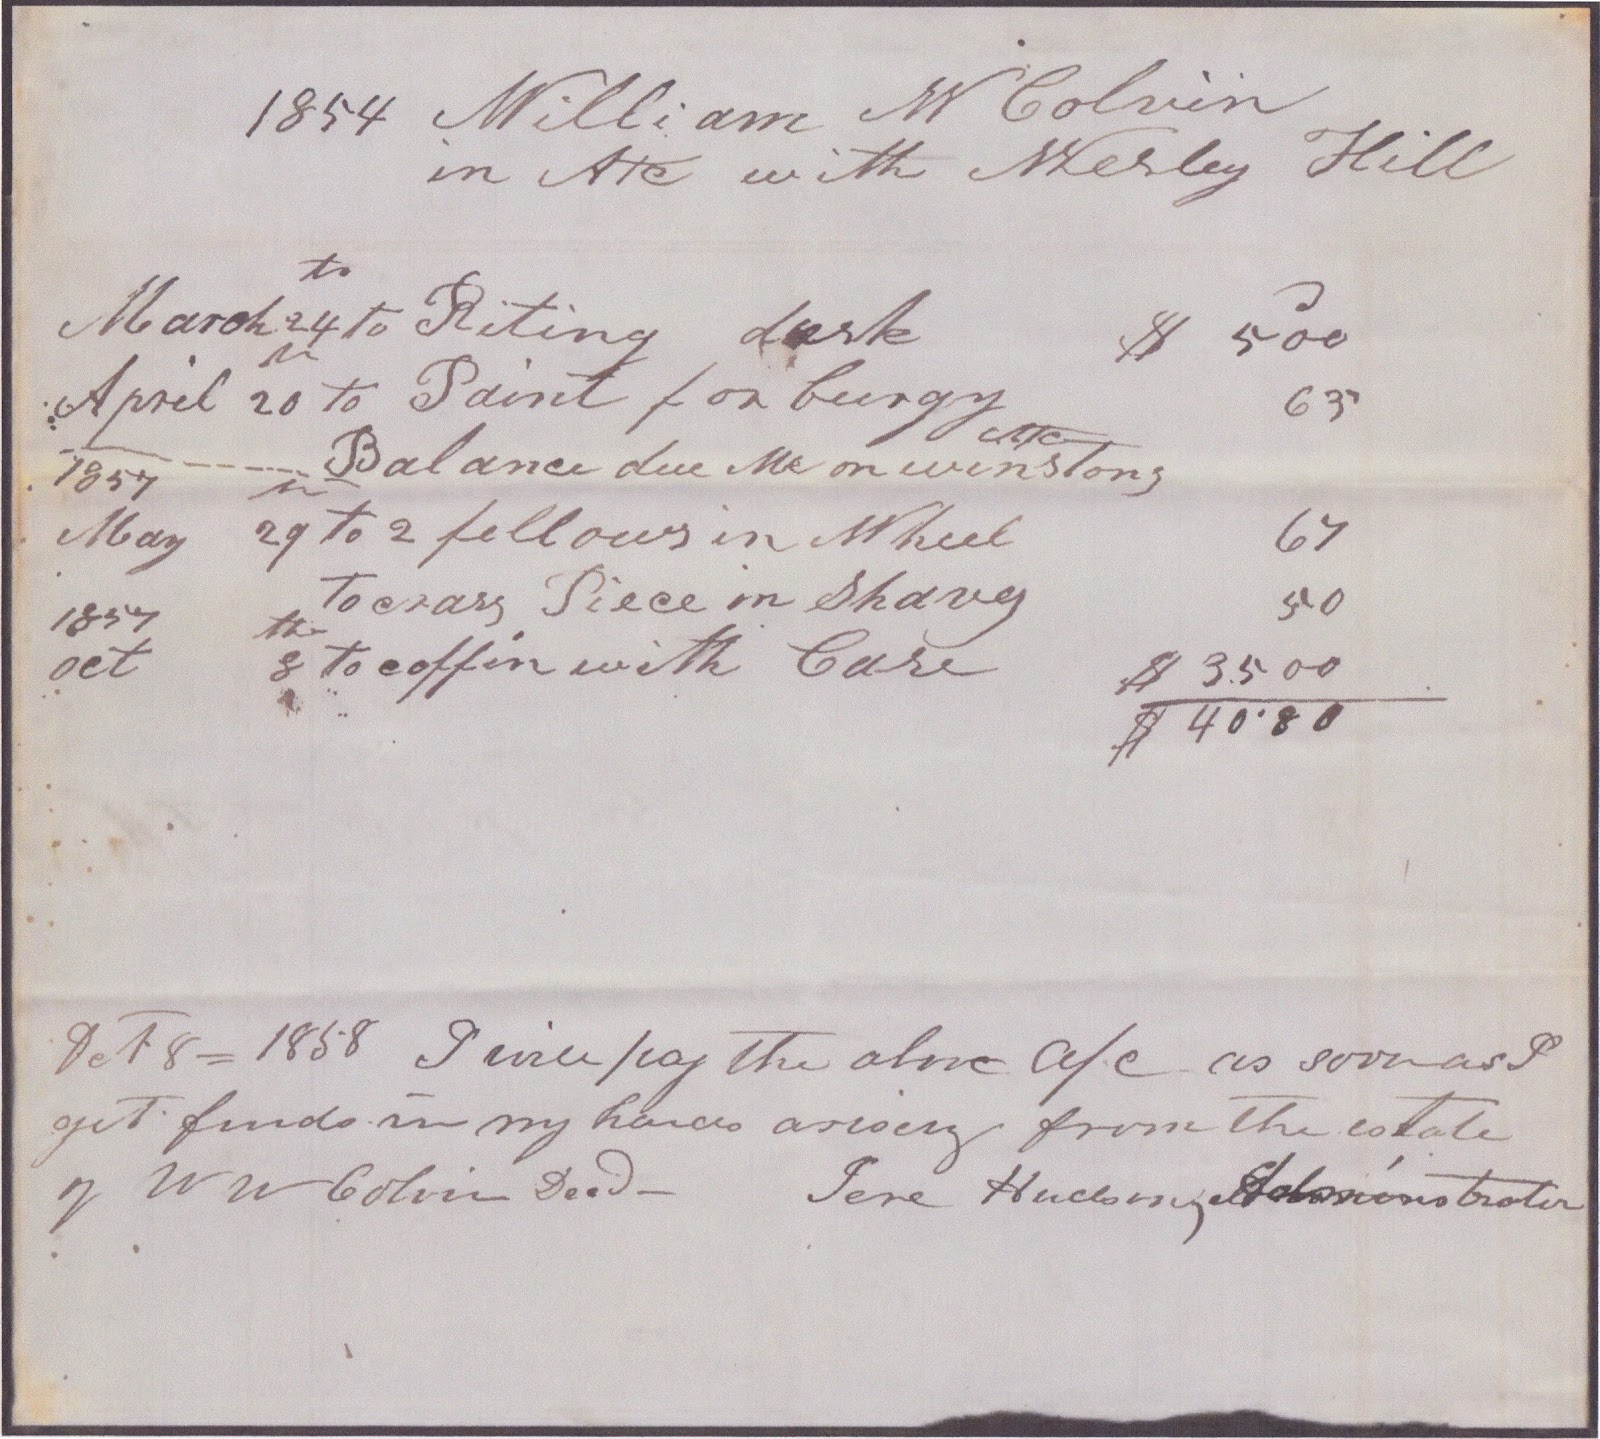 1854 William W Colvin
in Atc with Wesley Hill
March 24th to Riting desk $ 5 00
April 20th to Paint for burgy 63
Balance due Me on winstons Atc
1857
May 29th to 2 fellows in Wheel 67
to crass Piece in Shavs 50
1857
oct 8th to coffin with Case $ 35 00
$ 40.80
Oct 8 = 1858 I will pay the above a/c as soon as I
get funds in my hands arising from the estate
of W W Colvin Decd -
Jere Hudson, Administrator